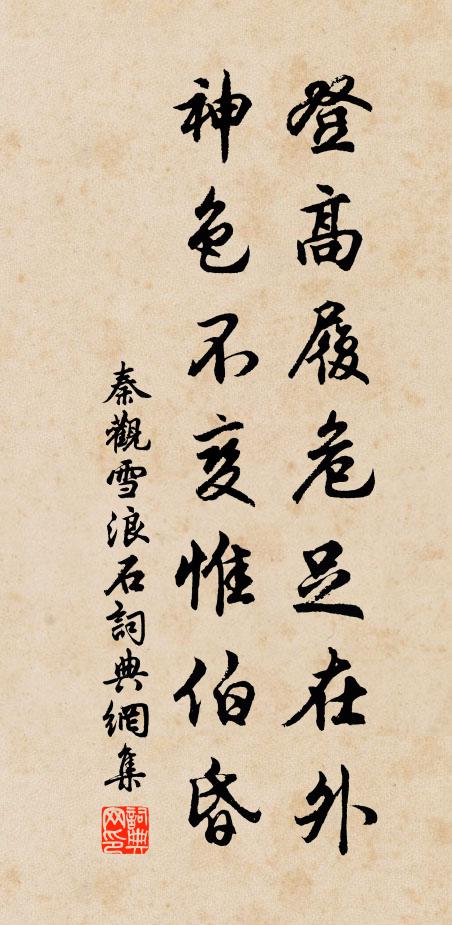 登高履危足在外
神色不變惟伯昏
秦觀雪浪石詞典網集
詞典網印